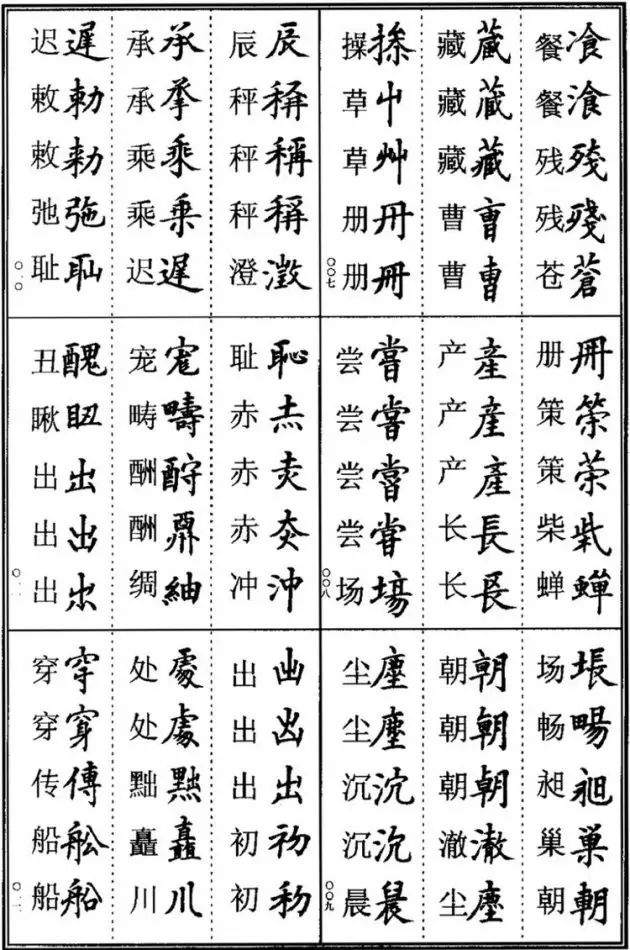 餐飡 餐湌 残殘 残殘 苍蒼
藏蔵 藏蔵 藏藏 曹曺 曹曹
操掺 草屮 草艸 册冊 册冊
〇〇七
册冊 策筞 策 柴 蝉蟬
产產 产産 产產 长長 长镸
尝嘗 尝嘗 尝嘗 尝甞 场塲
〇〇八
场 畅暢 昶昶 巢巢 朝朝
朝朝 朝朝 朝朝 澈澈 尘塵
尘塵 尘塵 沉沉 沉沉 晨晨
〇〇九
辰辰 秤稱 秤稱 秤稱 澄澂
承承 承承 乘乗 乘乗 迟遲
迟遲 敕勅 敕勑 弛 耻耻
〇一〇
耻恥 赤 赤 赤 冲沖
宠 畴疇 酬酧 酬 绸紬
丑醜 瞅 出出 出出 出出
〇一一
出出 出出 出出 初初 初初
处處 处處 黜黜 矗矗 川川
穿穿 穿穿 传傳 船舩 船船
〇一二